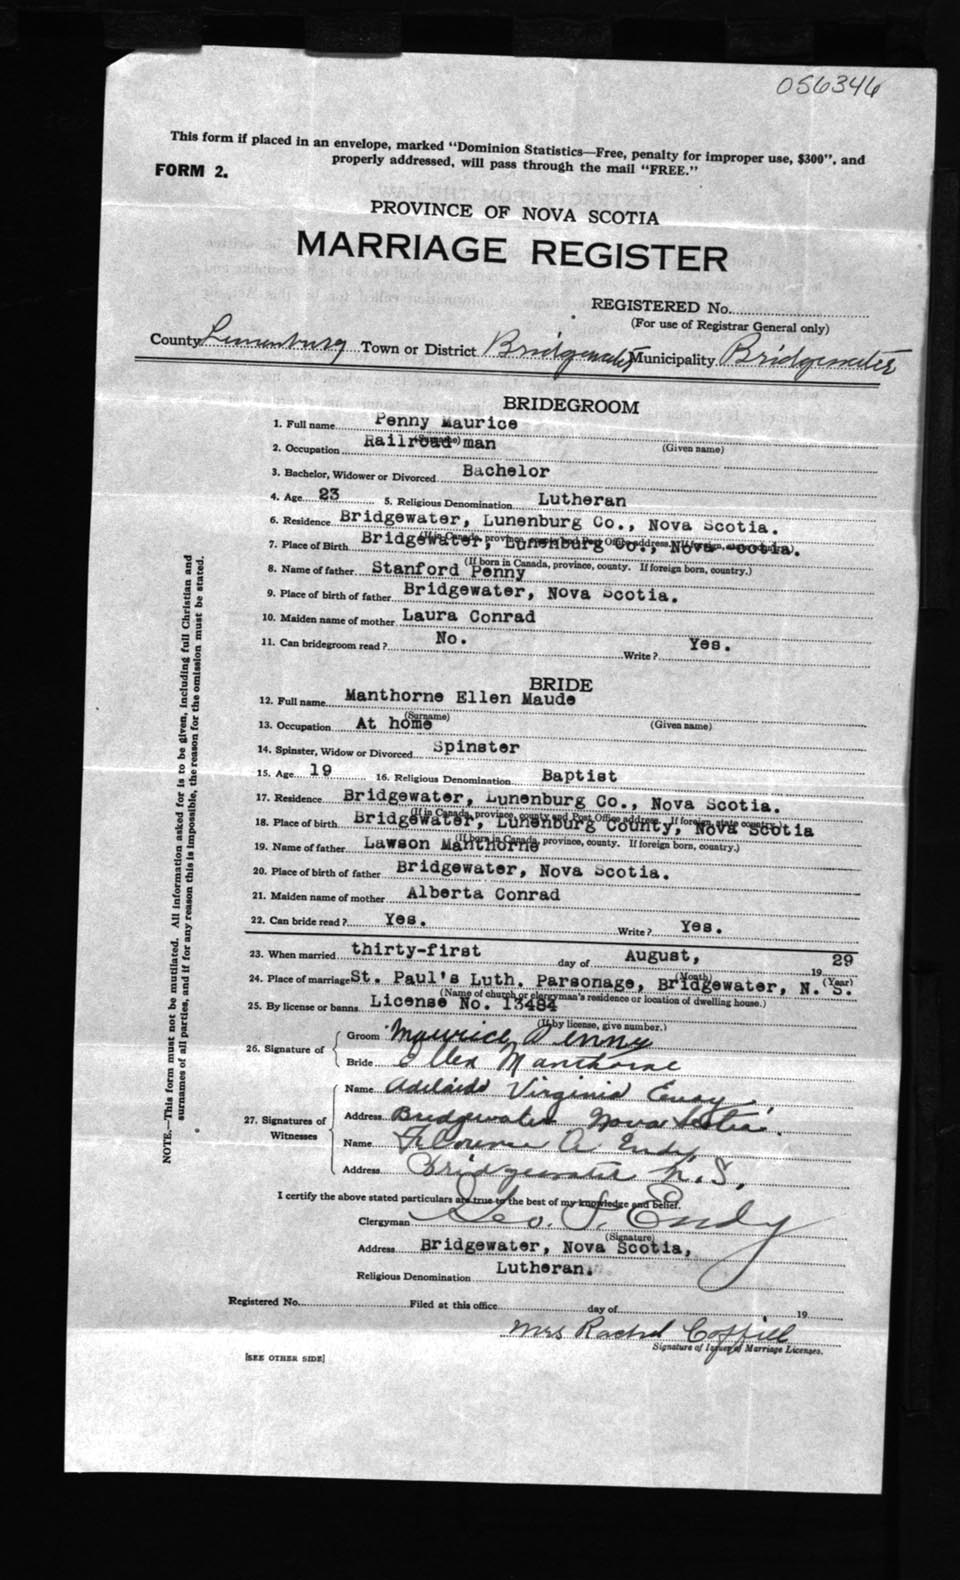 056346
This form if placed in an envelope, marked "Dominion Statistics—Free, penalty for improper use, $300", and
properly addressed, will pass through the mail "FREE."
FORM 2.
PROVINCE OF NOVA SCOTIA
MARRIAGE REGISTER
REGISTERED No.
(For use of Registrar General only)
County Lunenburg Town or District Bridgewater Municipality Bridgewater
BRIDEGROOM
1. Full name Penny Maurice
(Surname) (Given name)
2. Occupation Railroad man
3. Bachelor, Widower or Divorced Bachelor
4. Age 23 5. Religious Denomination Lutheran
6. Residence Bridgewater, Lunenburg Co., Nova Scotia.
(If in Canada, province, county and Post Office address. If foreign, state country.)
7. Place of Birth Bridgewater, Lunenburg Co., Nova Scotia.
(If born in Canada, province, county. If foreign born, country.)
8. Name of father Stanford Penny
9. Place of birth of father Bridgewater, Nova Scotia.
10. Maiden name of mother Laura Conrad
11. Can bridegroom read? No. Write? Yes.
BRIDE
12. Full name Manthorne Ellen Maude
(Surname) (Given name)
13. Occupation At home
14. Spinster, Widow or Divorced Spinster
15. Age 19 16. Religious Denomination Baptist
17. Residence Bridgewater, Lunenburg Co., Nova Scotia.
(If in Canada, province, county and Post Office address. If foreign, state country.)
18. Place of birth Bridgewater, Lunenburg County, Nova Scotia
(If born in Canada, province, county. If foreign born, country.)
19. Name of father Lawson Manthorne
20. Place of birth of father Bridgewater, Nova Scotia.
21. Maiden name of mother Alberta Conrad
22. Can bride read? Yes. Write? Yes.
23. When married thirty-first day of August, 19 29
(Month) (Year)
24. Place of marriage St. Paul's Luth. Parsonage, Bridgewater, N. S.
(Name of church or clergyman's residence or location of dwelling house.)
25. By license or banns License No. 13484
(If by license, give number.)
26. Signature of
Groom Maurice Penny
Bride Ellen Manthorne
27. Signatures of Witnesses
Name Adelaide Virginia
Address Bridgewater Nova Scotia.
Name Florence A. Endy
Address Bridgewater N.S,
I certify the above stated particulars are true to the best of my knowledge and belief.
Clergyman Geo. F. Endy
(Signature)
Address Bridgewater, Nova Scotia,
Religious Denomination Lutheran.
Registered No. Filed at this office day of 19
Mrs Rachel Coffill
Signature of Issuer of Marriage Licenses.
[SEE OTHER SIDE]
NOTE.—This form must not be mutilated. All information asked for is to be given, including full Christian and
surnames of all parties, and if for any reason this is impossible, the reason for the omission must be stated.